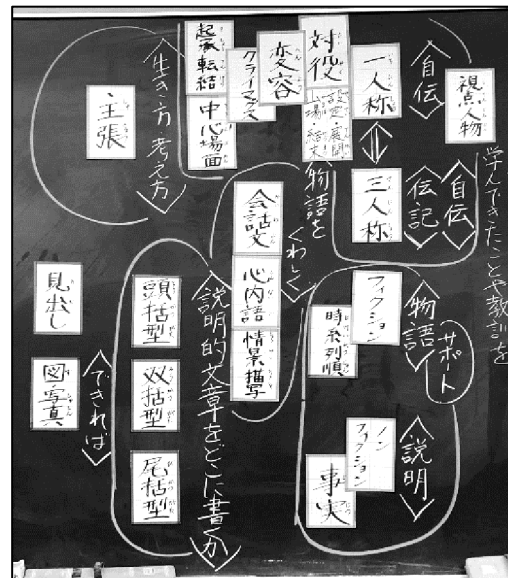 学んできたことや教訓を
視点人物
〈自伝〉
一人称
⇕
三人称
〈自伝〉
〈伝記〉
対役
設定・展開
山場・結末
変容
クライマックス
起承転結
中心場面
〈生き方・考え方〉
主張
〈物語をくわしく〉
会話文
心内語
情景描写
サポート
〈物語〉
フィクション
時系列順
〈説明〉
ノンフィクション
事実
〈説明的文章をどこに書くか〉
頭括型
双括型
尾括型
〈できれば〉
見出し
図写真